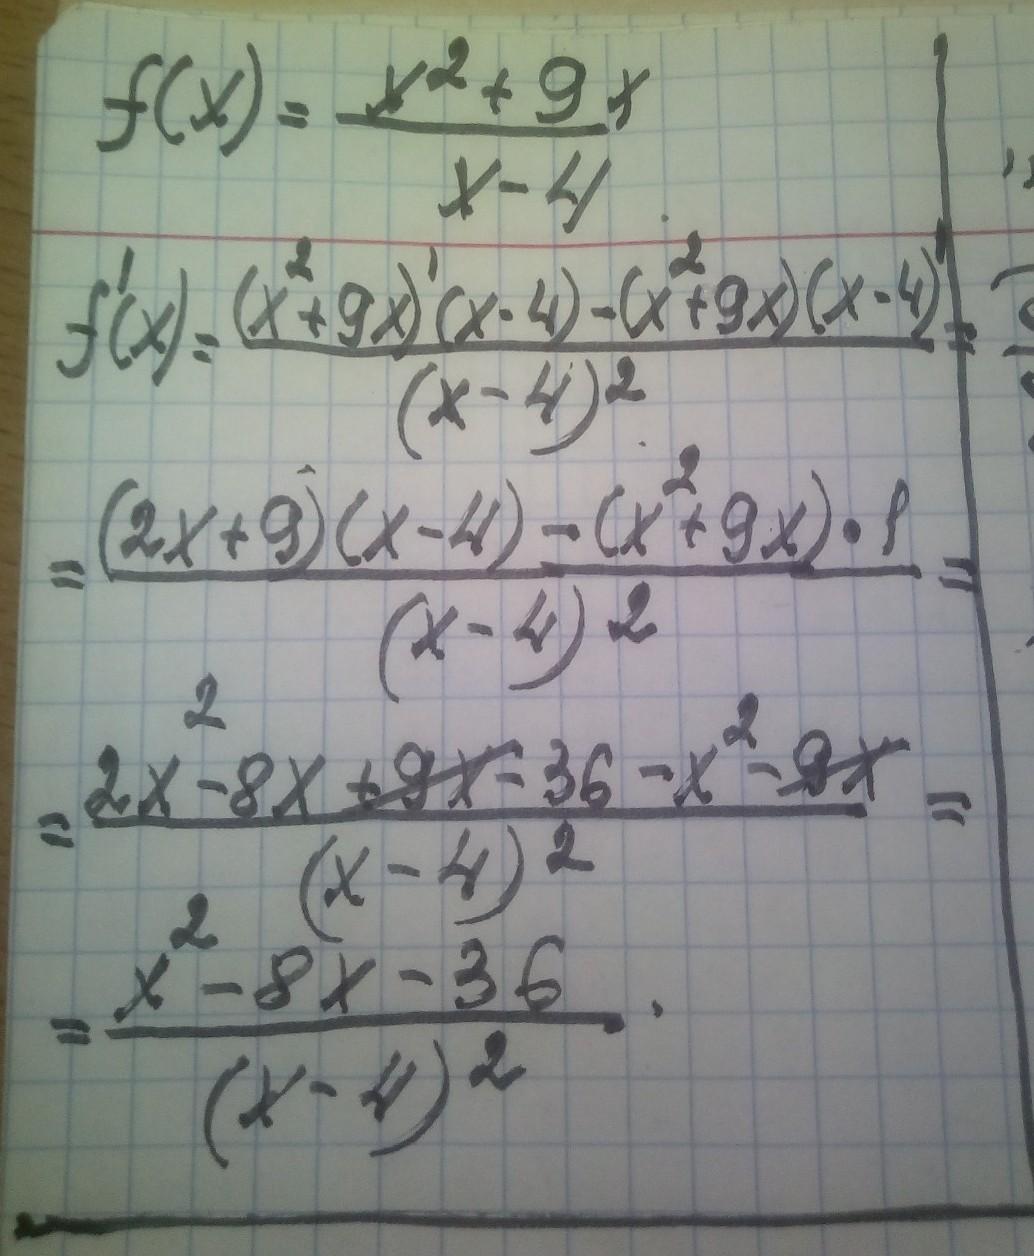 f(x) = (x² + 9x) / (x - 4)
f'(x) = ((x² + 9x)' (x - 4) - (x² + 9x)(x - 4)') / (x - 4)² =
= ((2x + 9)(x - 4) - (x² + 9x) · 1) / (x - 4)² =
= (2x² - 8x + 9x - 36 - x² - 9x) / (x - 4)² =
= (x² - 8x - 36) / (x - 4)² .